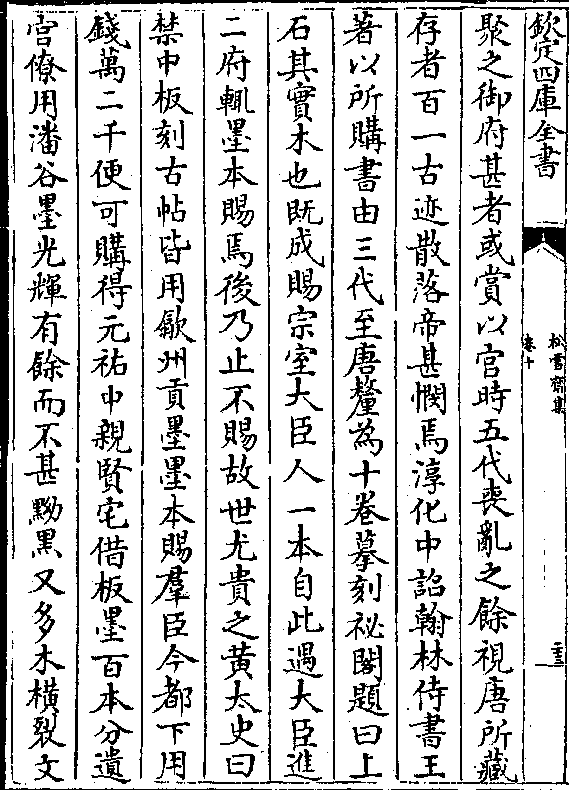 欽定四庫全書
松雪齋集
卷十
二十三
聚之御府甚者或賞以官時五代喪亂之餘視唐所藏
存者百一古迹散落帝甚憫焉淳化中詔翰林侍書王
著以所購書由三代至唐釐為十卷摹刻祕閣題曰上
石其實木也既成賜宗室大臣人一本自此遇大臣進
二府輒墨本賜焉後乃止不賜故世尤貴之黄太史曰
禁中板刻古帖皆用歙州貢墨墨本賜羣臣今都下用
錢萬二千便可購得元祐中親賢宅借板墨百本分遺
宫僚用潘谷墨光輝有餘而不甚黝黒又多木横裂文